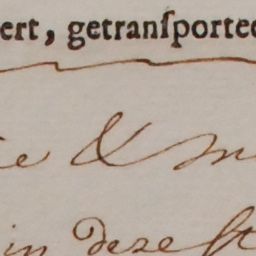 ert, getranſported
e & m
in deze ſt